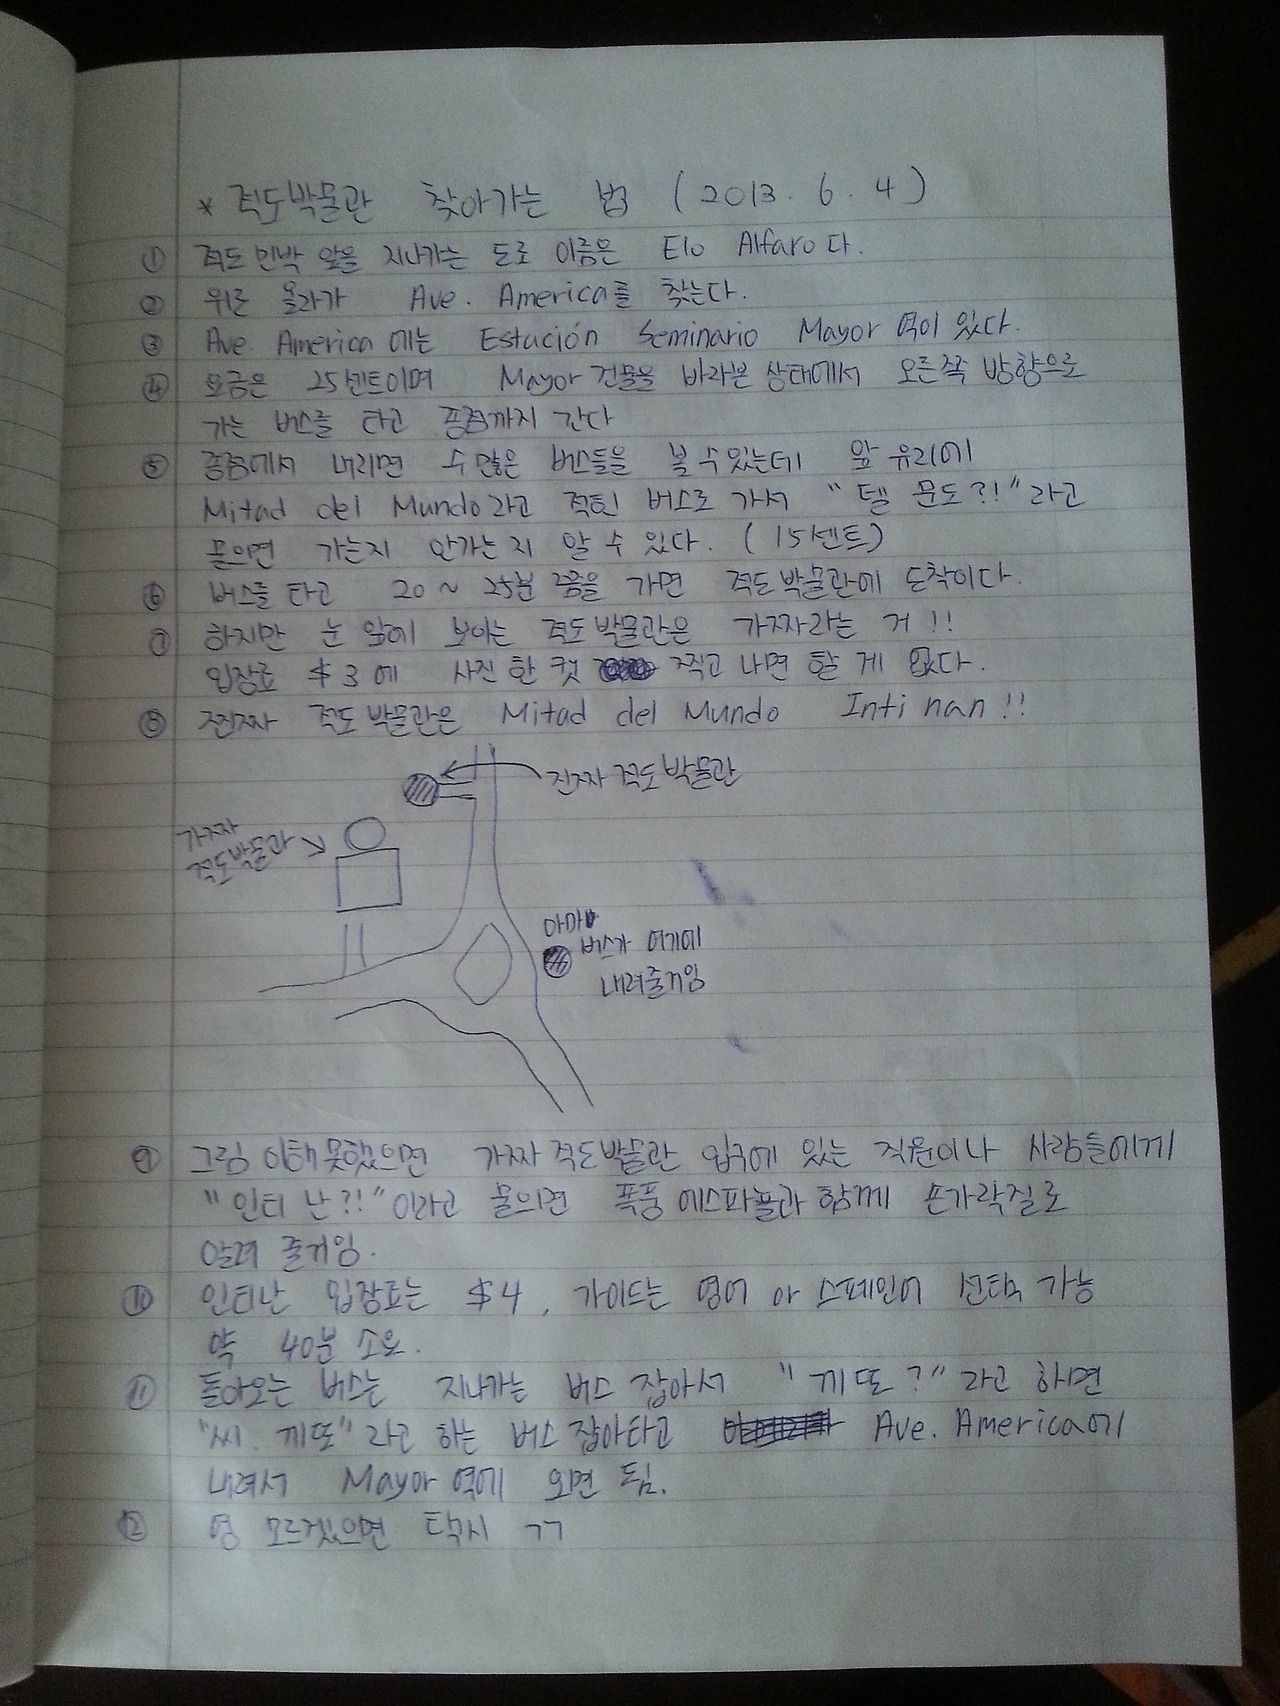 * 적도박물관 찾아가는 법 (2013. 6. 4)
① 적도민박 앞을 지나가는 도로 이름은 Elo Alfaro다.
② 위로 올라가 Ave. America를 찾는다.
③ Ave. America에는 Estución Seminario Mayor 역이 있다.
④ 요금은 25센트이며 Mayor 건물을 바라본 상태에서 오른쪽 방향으로
가는 버스를 타고 종점까지 간다
⑤ 종점에서 내리면 수많은 버스들을 볼 수 있는데 앞 유리에
Mitad del Mundo라고 적힌 버스로 가서 "델 문도?!"라고
물으면 가는지 안가는지 알 수 있다. (15센트)
⑥ 버스를 타고 20~25분 쯤을 가면 적도박물관에 도착이다.
⑦ 하지만 눈 앞에 보이는 적도박물관은 가짜라는 거!!
입장료 $3에 사진 한 컷 찍고 나면 할 게 없다.
⑧ 진짜 적도박물관은 Mitad del Mundo Inti nan!!
진짜 적도박물관
가짜
적도박물관
아마
버스가 여기에
내려줄거임
⑨ 그림 이해 못했으면 가짜 적도박물관 입구에 있는 직원이나 사람들에게
"인티 난?!"이라고 물으면 폭풍 에스파뇰과 함께 손가락질로
알려 줄거임.
⑩ 인티난 입장료는 $4, 가이드는 영어 or 스페인어 선택 가능
약 40분 소요.
⑪ 돌아오는 버스는 지나가는 버스 잡아서 "끼또?"라고 하면
"씨. 끼또"라고 하는 버스 잡아타고 Ave. America에
내려서 Mayor 역에 오면 됨.
⑫ 영 모르겠으면 택시 ㄱㄱ